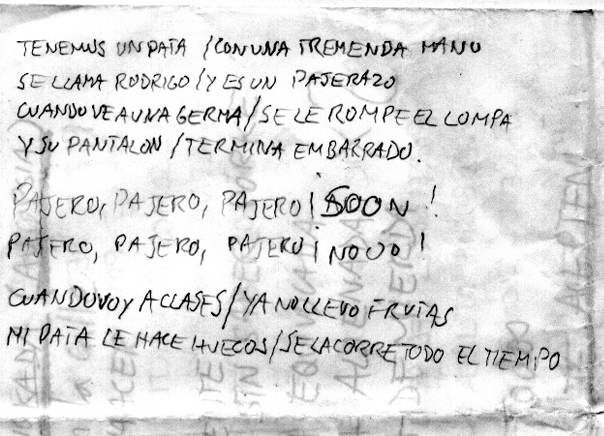 TENEMUS UN PATA / CON UNA TREMENDA MANO
SE LLAMA RODRIGO / Y ES UN PAJERAZO
CUANDO VE A UNA GERMA / SE LE ROMPE EL LOMPA
Y SU PANTALON / TERMINA EMBARRADO.
PAJERO, PAJERO, PAJERO ¡ SOON !
PAJERO, PAJERO, PAJERO ¡ NOUO !
CUANDO VOY A CLASES / YA NO LLEVO FRUTAS
MI PATA LE HACE HUECOS / SE LA CORRE TODO EL TIEMPO